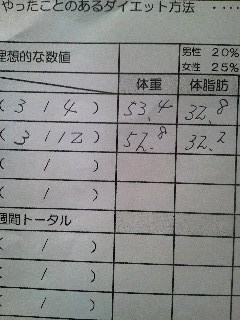 やったことのあるダイエット方法 ・・・・
理想的な数値
男性 20%
女性 25%
体重 体脂肪
( 3 / 4 ) 53.4 32.8
( 3 / 12 ) 52.8 32.2
( / )
( / )
週間トータル
( / )
( / )
( / )